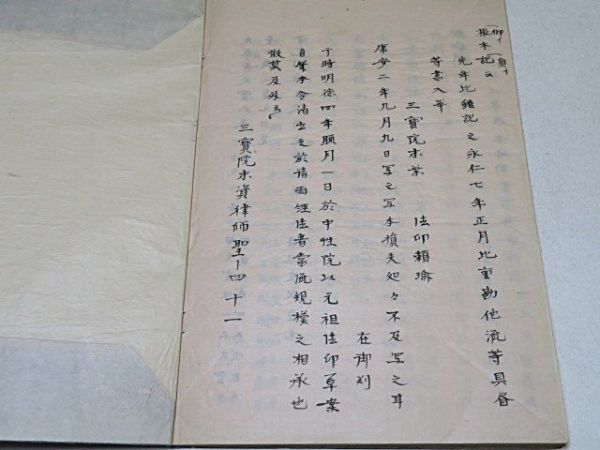 (御イ (奥イ
根本記云
先年比雖記之永仁七年正月比重勘他流等具昏
等書入畢
三寶院末葉 法印頼瑜
康安二年九月九日写之写本損失処々不及写之耳
在御判
于時明徳四年臘月一日於中性院以元祖法印草案
自筆本令清書之於請雨經法者當流規模之相承也
散莫及外見
三寶院末資律師聖ー四十一